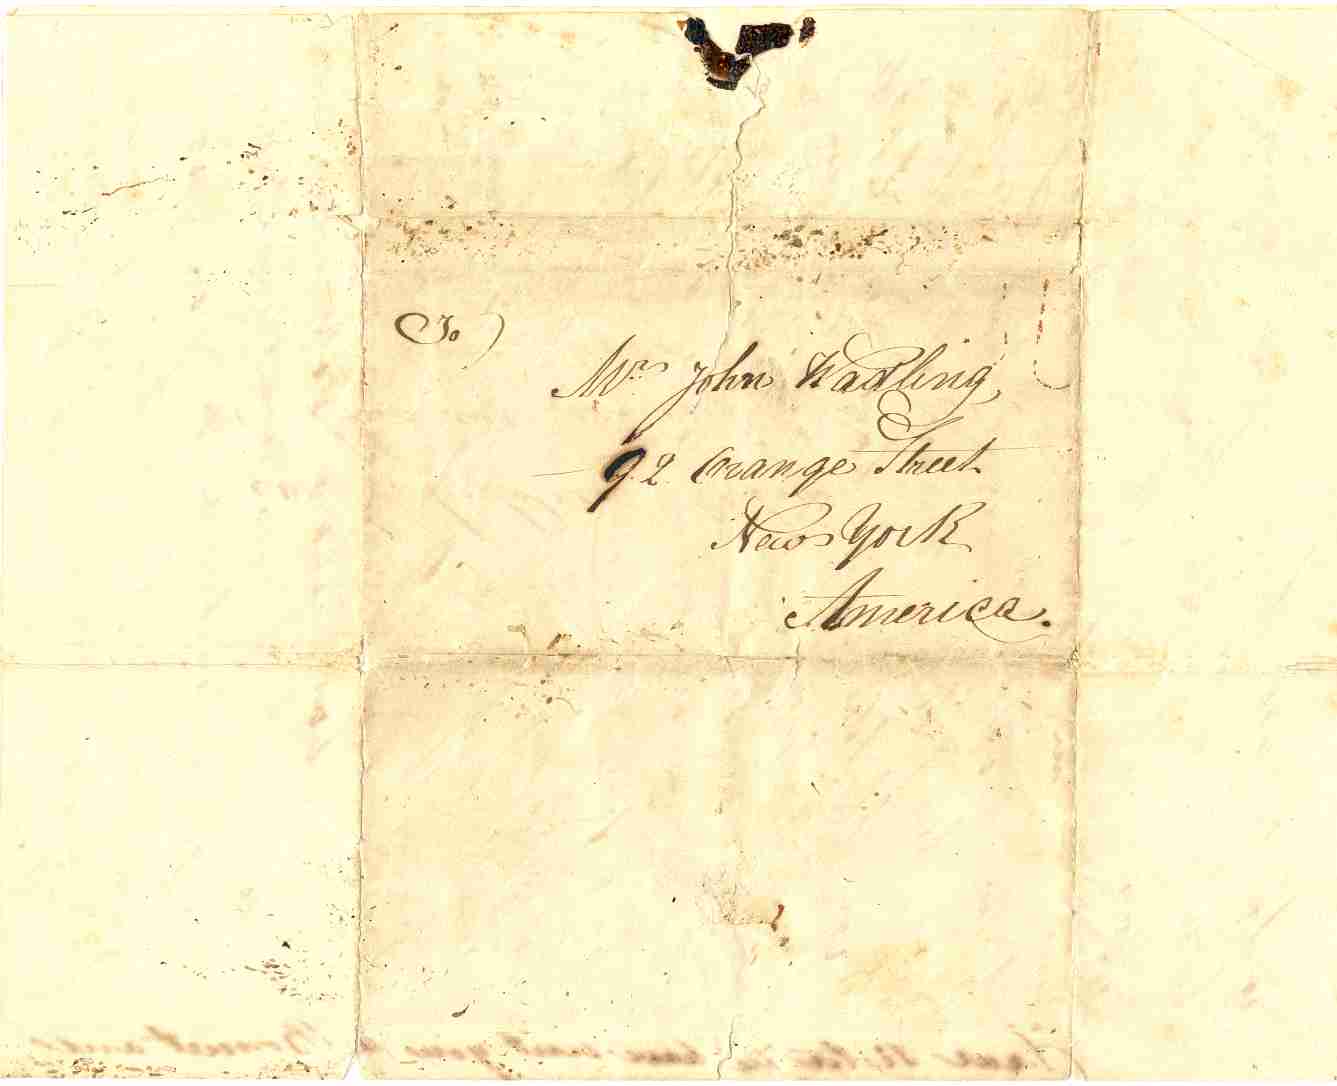 To
Mr. John Hadling,
92 Orange Street
New York
America.